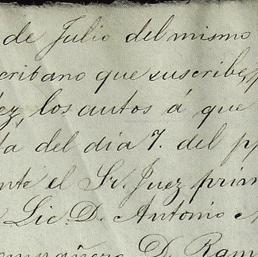 de Julio del mismo
cribano que suscribe,
ez, los autos á que
a del dia 7. del pp
nte el Sr. Juez prim
Lic. D. Antonio
mpañero D. Ram